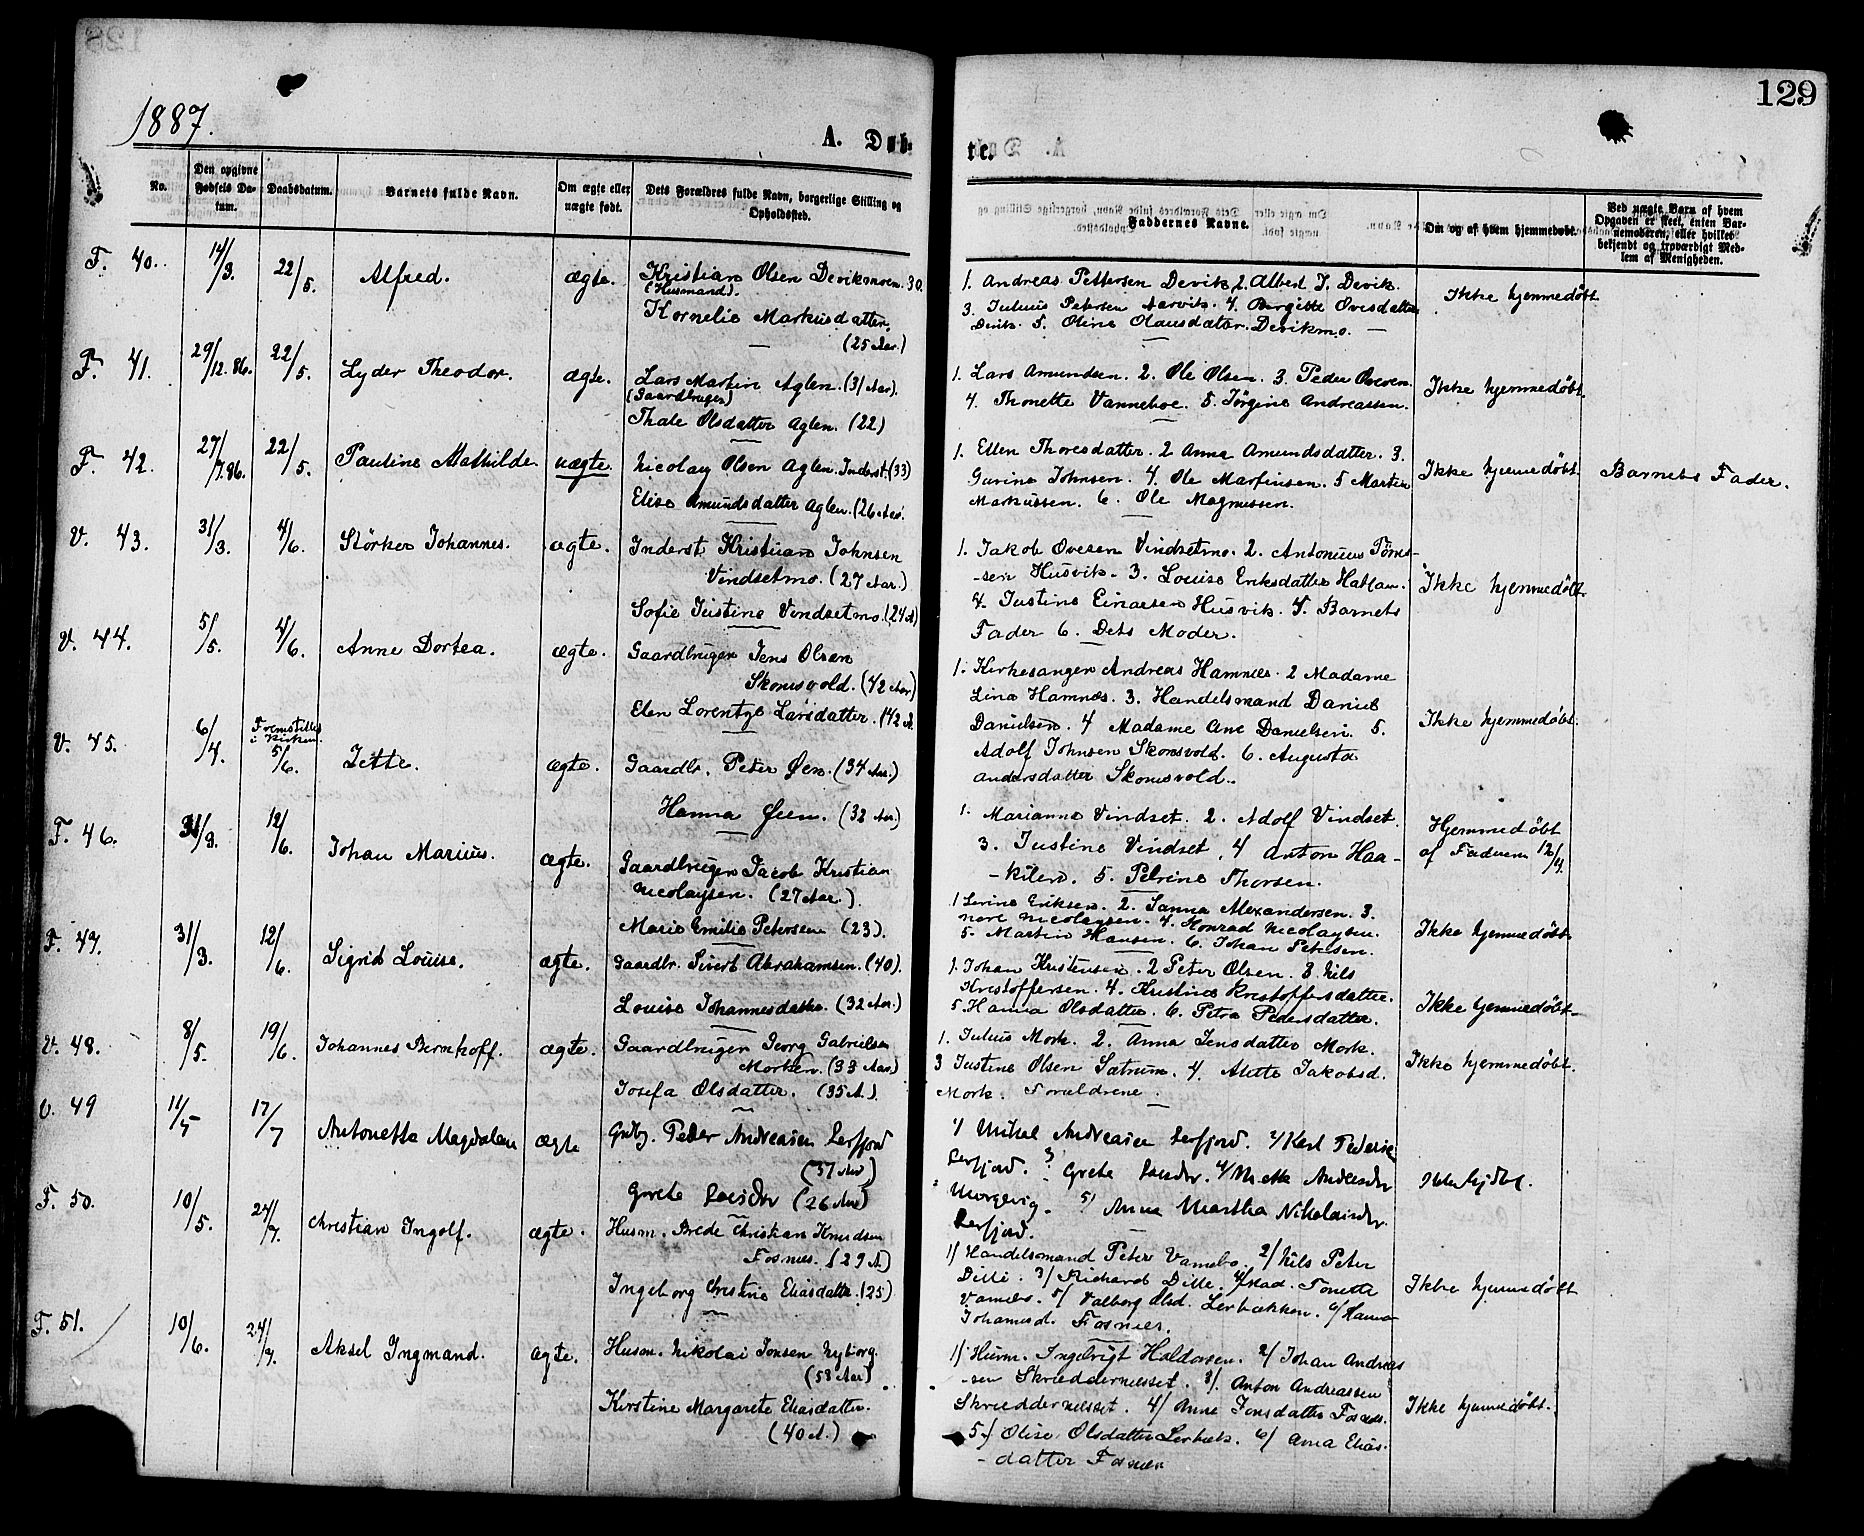 129
1887.
A. Døb-
te.
No.
Den opgivne Fødsels Datum.
Daabsdatum.
Barnets fulde Navn.
Om ægte eller uægte født.
Dets Forældres fulde Navn, borgerlige Stilling og Opholdssted.
Faddernes Navne.
Om og af hvem hjemmedøbt.
Ved uægte Barn af hvem Opgaven er skeet, enten Barnemoderen, eller hvilket bekjendt og troværdigt Medlem af Menigheden.
F. 40. 14/3. 22/5. Alfred. ægte.
Kristian Olsen Devikmoen. 30.
(Husmand).
Kornelie Markusdatter.
(25 Aar.)
1. Andreas Pettersen Devik, 2. Albert J. Devik.
3. Julius Petersen Aarvik. 4. Birgitte Ovesdatter
Devik. 5. Oline Olausdatter Devikmo. —
Ikke hjemmedøbt
F. 41. 29/12.86. 22/5. Lyder Theodor. ægte.
Lars Martin Aglen. (31 Aar).
(Gaardbruger)
Thale Olsdatter Aglen. (22)
1. Lars Amundsen. 2. Ole Olsen. 3. Peder Ovesen.
4. Thonette Vanneboe. 5. Jørgine Andreassen.
Ikke hjemmedøbt.
F. 42. 27/7.86. 22/5. Pauline Mathilde. uægte.
Nicolay Olsen Aglen. Inderst. (33)
Elise Amundsdatter Aglen. (26 Aar.
1. Ellen Thoresdatter. 2 Anna Amundsdatter. 3.
Gurine Johnsen. 4. Ole Marfinsen. 5 Martin
Markussen. 6. Ole Magnussen.
Ikke hjemmedøbt.
Barnets Fader.
V. 43. 31/3. 4/6. Størker Johannes. ægte.
Inderst Kristian Johnsen
Vindsetmo. (27 Aar.)
Sofie Justine Vindsetmo. (24 A)
1. Jakob Ovesen Vindsetmo. 2. Antonius Tøms-
-sen Husvik. 3. Louise Eriksdatter
4. Justine Einarsen Husvik. 5. Barnets
Fader 6. Dets Moder.
Ikke hjemmedøbt.
V. 44. 5/5. 4/6. Anne Dortea. ægte.
Gaardbruger Jens Olsen
Skomsvold. (42 Aar)
Elen Lorentze Larsdatter. (42 A.
1. Kirkesanger Andreas Hamnes. 2 Madame
Lina Hamnes. 3. Handelsmand Daniel
Danielsen. 4 Madame Ane Danielsen. 5.
Adolf Johnsen Skomsvold. 6. Augusta
Andersdatter Skomsvold.
Ikke hjemmedøbt.
V. 45. 6/4. Fremstillet
i Kirken
5/6. Jette. ægte.
Gaardbr. Peter Øen. (34 Aar.)
Hanna Øen. (32 Aar.)
1. Marianne Vindset. 2. Adolf Vindset.
3. Justine Vindset. 4 Anton Haa-
-kilen. 5. Petrine Thorsen.
Hjemmedøbt
af Faderen 12/4.
F. 46. 31/3. 12/6. Johan Marius. ægte.
Gaardbruger Jacob Kristian
Nicolaysen. (27 Aar.).
Marie Emilie Petersen (23).
1 Lovine Eriksen. 2. Sanna Alexandersen. 3.
Nicolaysen. 4. Konrad Nicolaysen.
5. Martin Hansen. 6. Johan Petersen.
Ikke hjemmedøbt.
F. 47. 31/3. 12/6. Sigrid Louise. ægte.
Gaardbr. Sivert Abrahamsen. (40).
Louise Johannesdatter. (32 Aar.)
1. Johan Kristensen. 2 Peter Olsen. 3 Nils
Kristoffersen. 4. Kristine Kristoffersdatter.
5. Hanna Olsdatter. 6. Petra Pedersdatter.
Ikke hjemmedøbt
V. 48. 8/5. 19/6. Johannes Bernhoff. ægte.
Gaardbruger Georg Gabrielsen
Morken. (33 Aar)
Josefa Olsdatter. (35 A.)
1. Julius Mork. 2. Anna Jensdatter Mork.
3 Justine Olsen Sætrum. 4. Alette Jakobsd.
Mork. Forældrene.
Ikke hjemmedøbt.
V. 49 11/5 17/7 Antonette Magdalene ægte
Grdbg. Peder Andreasen Lerfjord
(37 Aar)
Grete (26 Aar)
1/ Mikal Andreasen Lerfjord. 2/ Karl Pedersen
Lerfjord. 3/ Grete 4/ Mette Andersdtr
5/ Anna Martha Nikolaisdtr
Lerfjord.
F. 50. 10/5. 24/7. Christian Ingolf. ægte.
Husm. Brede Christian Knudsen
Fosnæs. (29 A)
Ingeborg Cristine Eliasdatter. (25)
1/ Handelsmand Peter Vannebo. 2/ Nils Peter
Dille. 3/ Richard Dille. 4/ Mad. Tonette
Vannebo. 5/ Valborg Olsd. Lerbækken. 6/ Hanna
Johannesd. Fosnæs.
Ikke hjemmedøbt
F. 51. 10/6. 24/7. Aksel Ingmand. ægte.
Husm. Nikolai Jonsen Nyborg.
(53 Aar)
Kirstine Margarete Eliasdatter.
(40 A.)
1/ Husm. Ingebrigt Haldorsen. 2/ Johan Andreas
-sen Skræddernesset. 3/. Anton Andreassen
Skræddernesset. 4/ Anne Jonsdatter Fosnæs.
5/ Olise Olsdatter Lerbæk. 6/ Anna Elias-
-datter Fosnæs
Ikke hjemmedøbt.